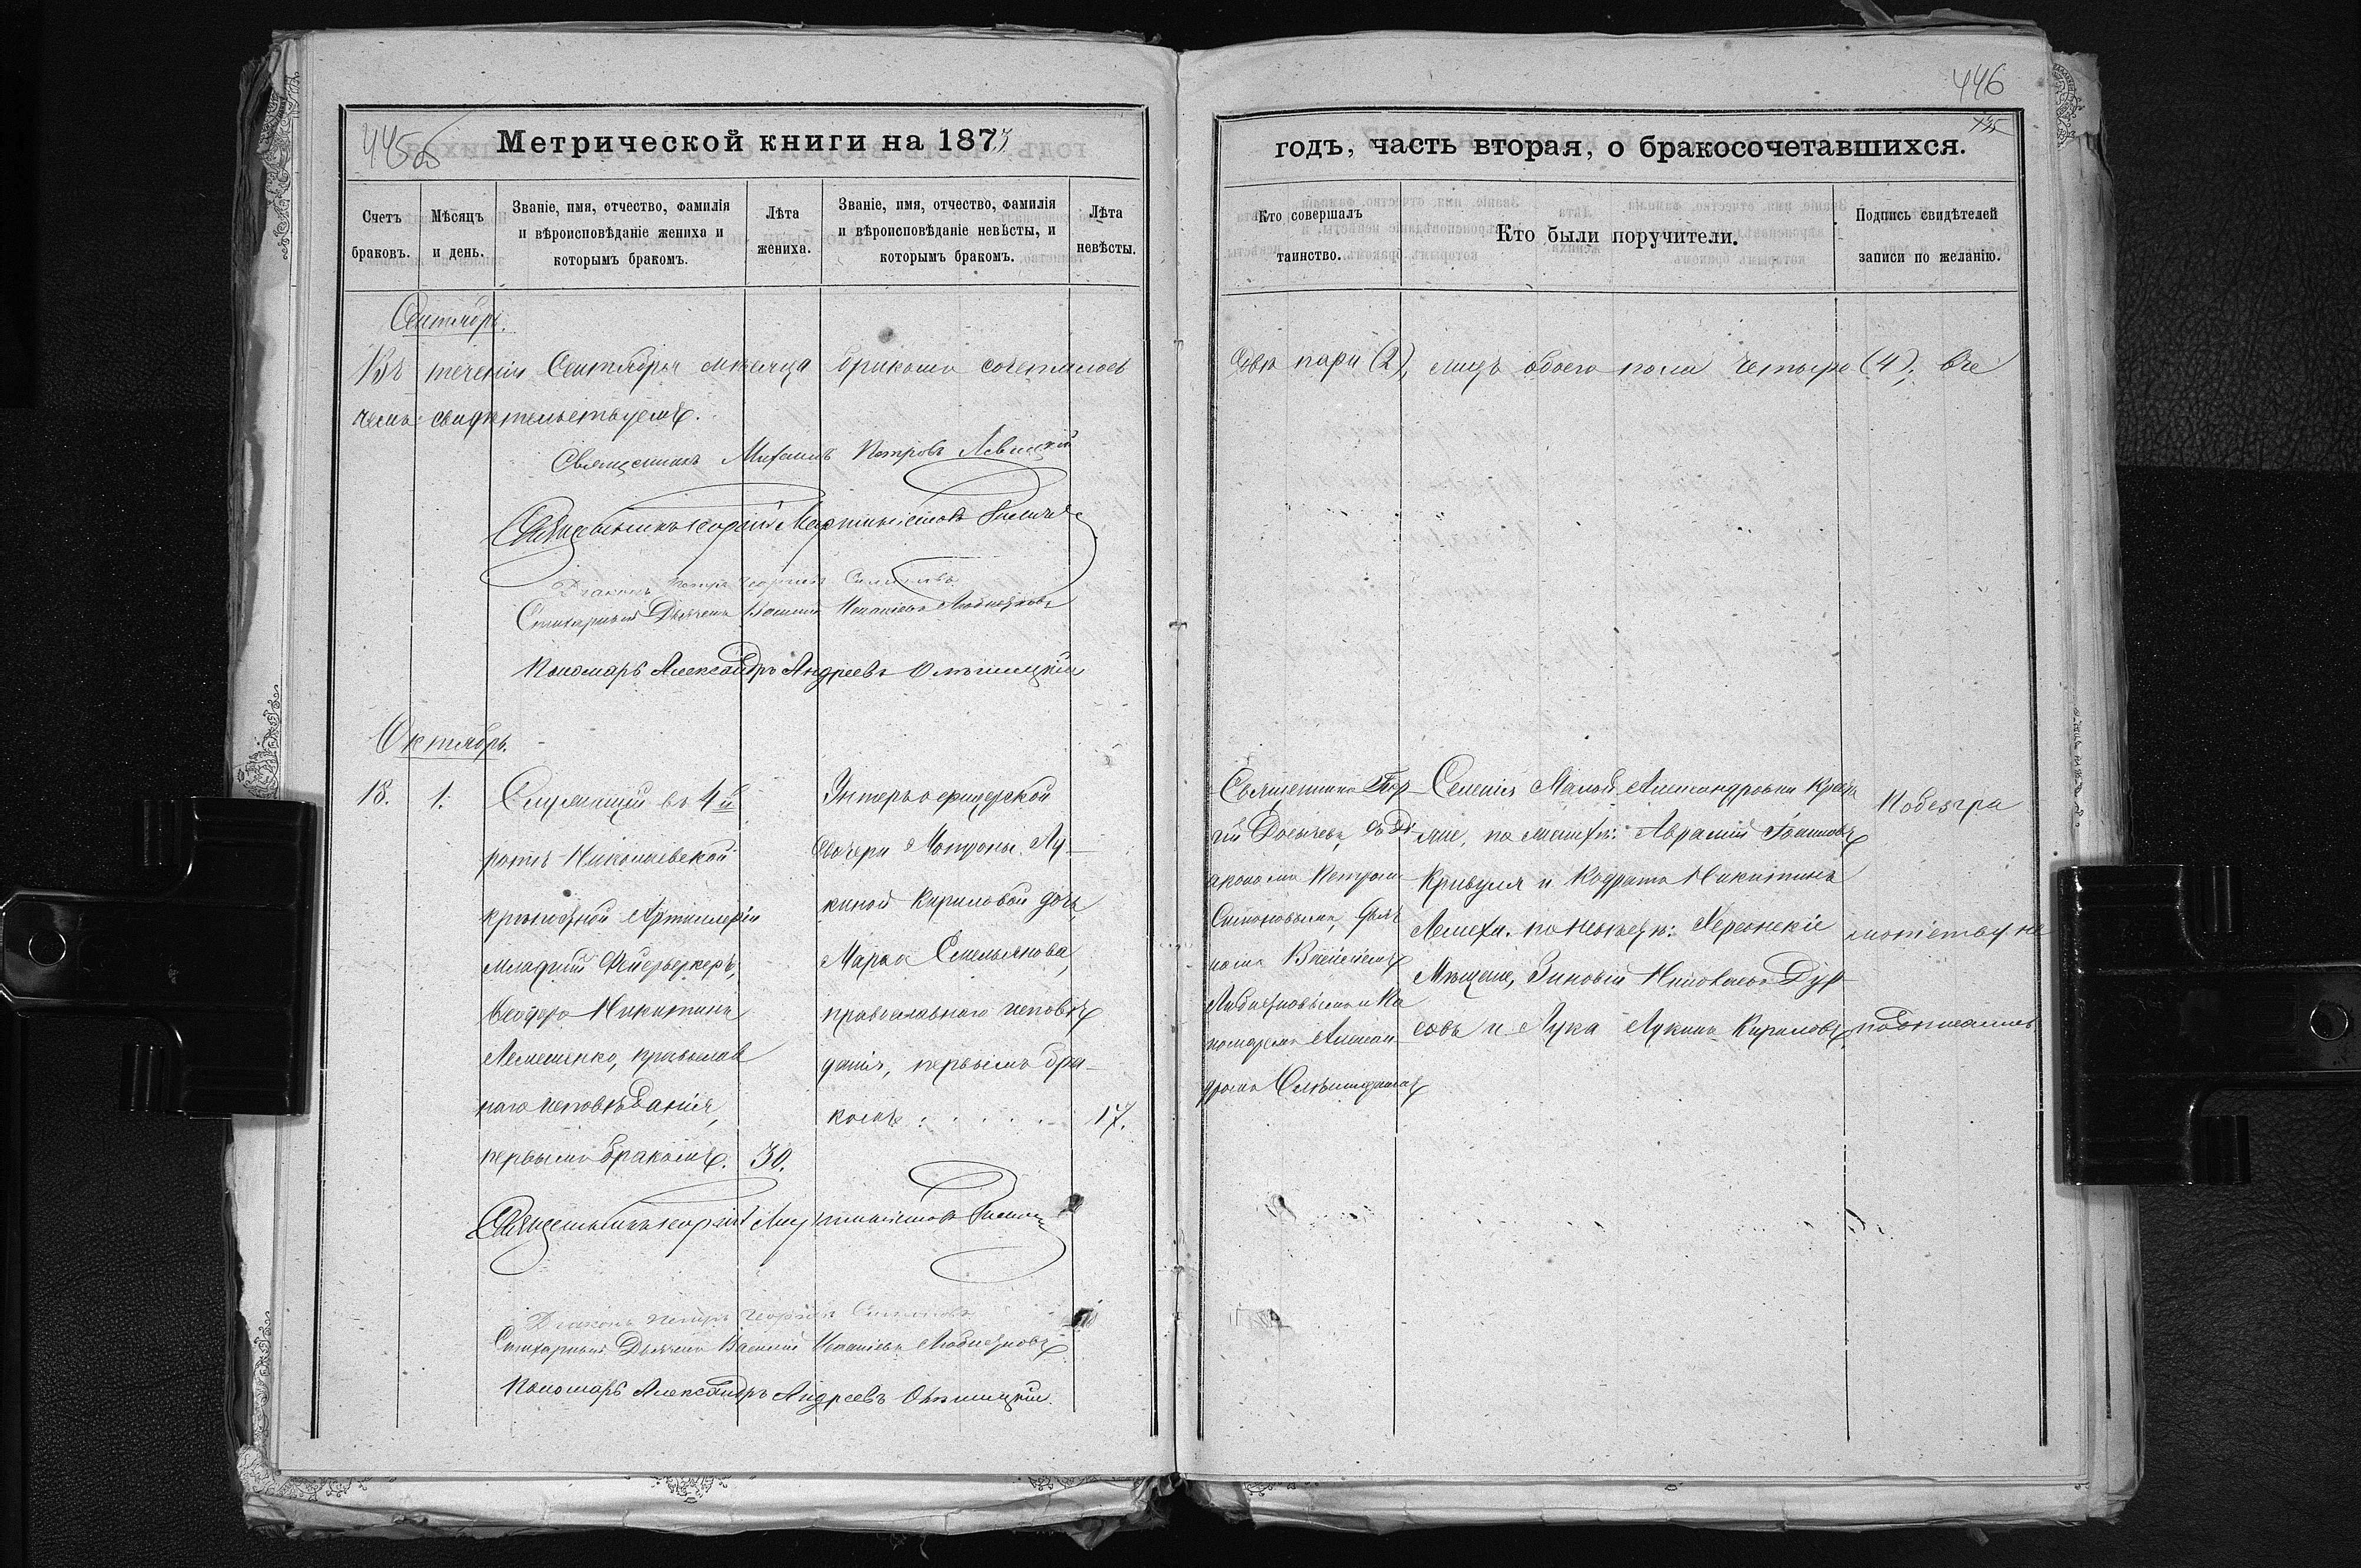 445 об
Метрической книги на 1873
Счетъ браковъ.
Мѣсяцъ и день.
Званіе, имя, отчество, фамилія и вѣроисповѣданіе жениха и которымъ бракомъ.
Лѣта жениха.
Званіе, имя, отчество, фамилія и вѣроисповѣданіе невѣсты, и которымъ бракомъ.
Лѣта невѣсты.
Сентябрь.
Въ теченіи Сентября мѣсяца бракомъ сочеталось
чемъ свидѣтельствуемъ.
Священникъ Михаилъ Петровъ Левицкій
Священникъ Георгій
Діаконъ Петръ Георгіевъ
Стихарный Дьячекъ Василій
Пономарь Александръ Андреевъ
Октябрь.
18.
1.
Служащій въ 4й
ротѣ Николаевской
крѣпостной Артиллеріи
младшій Фейерверкеръ,
Ѳеодоръ Никитинъ
Лемешенко, православ
наго исповѣданія,
первымъ бракомъ.
30.
Унтеръ офицерской
дочери Матроны Лу-
киной Кириловой дочь,
Марѳа Емельянова,
православнаго исповѣ
данія, первымъ бра-
комъ
17.
Священникъ Георгій
Діаконъ Петръ Георгіевъ
Стихарный Дьячекъ Василій
Пономарь Александръ Андреевъ
446
годъ, часть вторая, о бракосочетавшихся.
Кто совершалъ таинство.
Кто были поручители.
Подпись свидѣтелей записи по желанію.
Два пари (2), лицъ обоего пола четыре (4); въ
Священникъ Геор
гій съ Ді
акономъ Петромъ
номъ Василіемъ
и По
номаремъ Алексан
дромъ
Селенія Малой Александровки Крестья
не, по женихѣ: Аврамій Іоанновъ
Кривуля и Кодратъ Никитинъ
Лемеха. по невѣстѣ: Херсонскіе
Мѣщане, Зиновій
и Лука Лукинъ Кириловъ
По безгра
мотству не
подписались